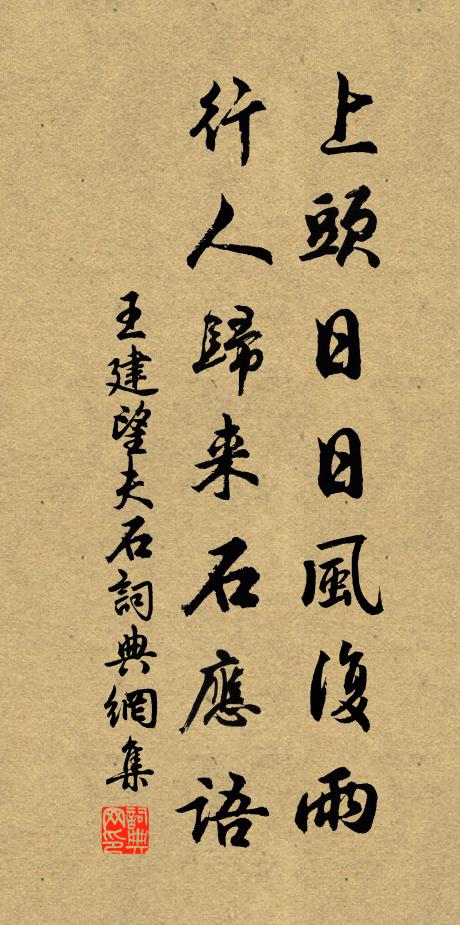 上頭日日風復雨
行人歸来石應語
王建望夫石詞典網集
詞典网印